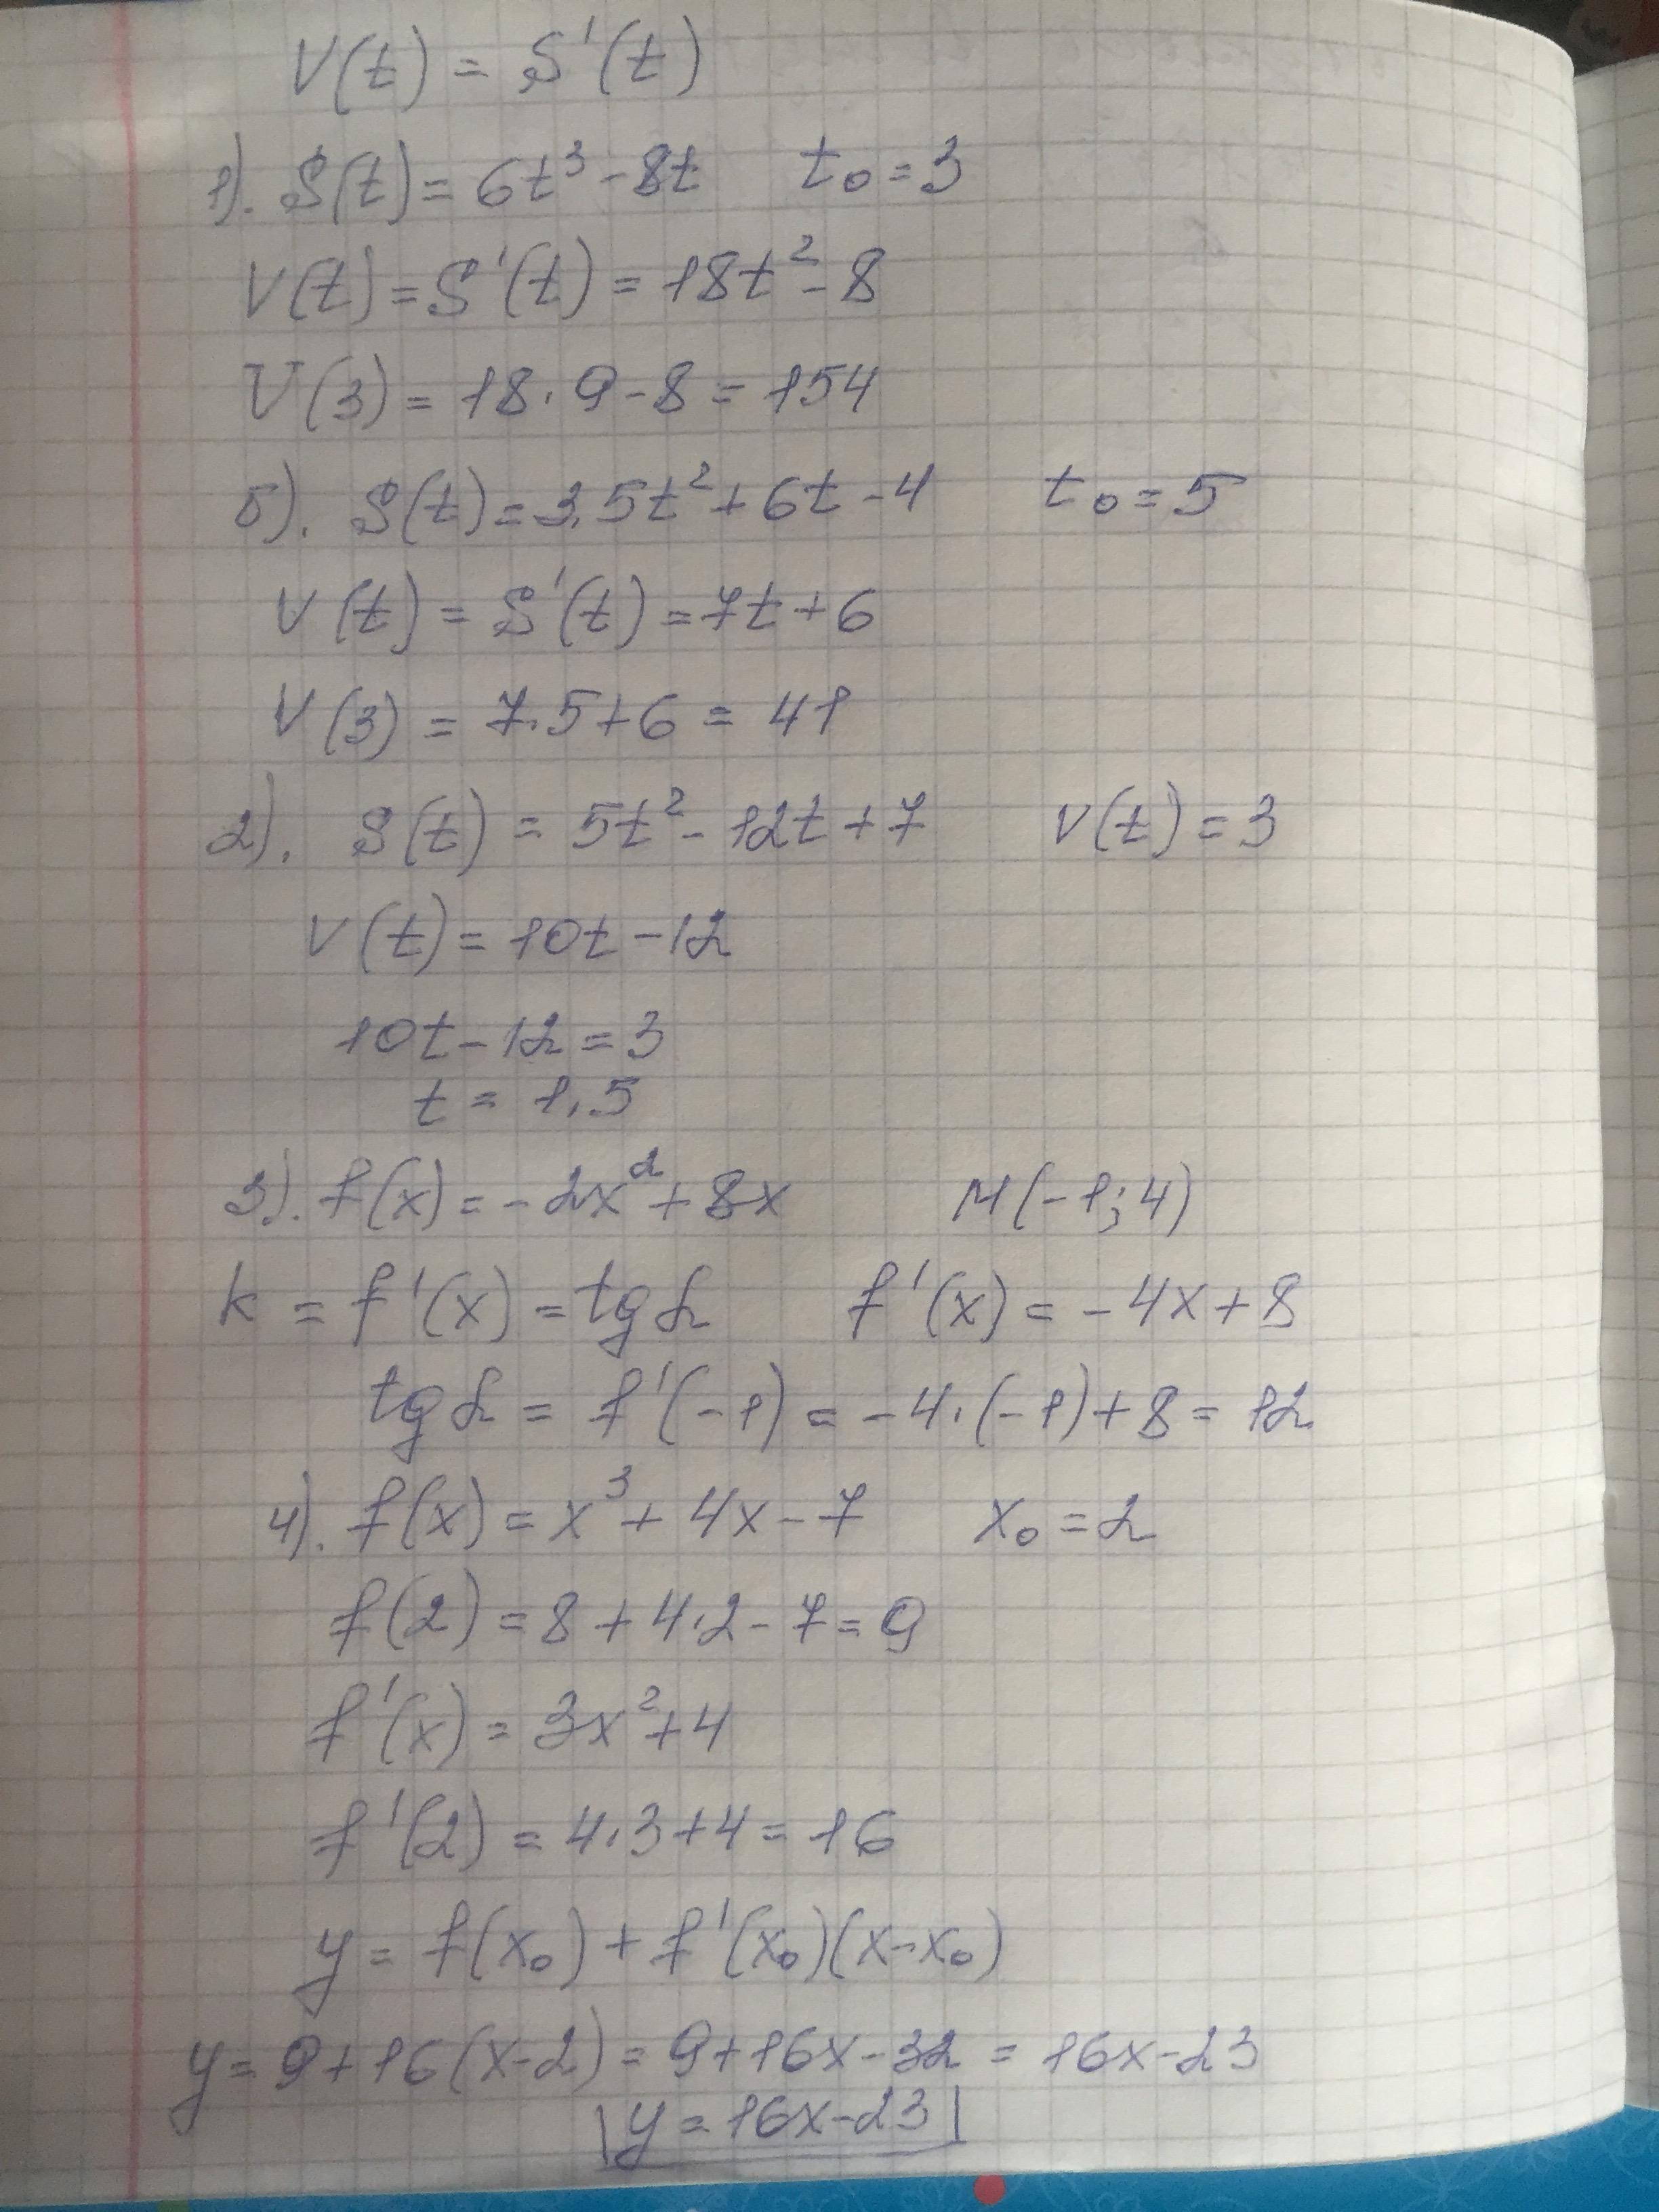 V(t) = S'(t)
1). S(t) = 6t³ - 8t t₀ = 3
V(t) = S'(t) = 18t² - 8
V(3) = 18 · 9 - 8 = 154
б). S(t) = 3,5t² + 6t - 4 t₀ = 5
V(t) = S'(t) = 7t + 6
V(3) = 7·5 + 6 = 41
2). S(t) = 5t² - 12t + 7 V(t) = 3
V(t) = 10t - 12
10t - 12 = 3
t = 1,5
3). f(x) = -2x² + 8x M(-1; 4)
k = f'(x) = tg α f'(x) = -4x + 8
tg α = f'(-1) = -4·(-1) + 8 = 12
4). f(x) = x³ + 4x - 7 x₀ = 2
f(2) = 8 + 4·2 - 7 = 9
f'(x) = 3x² + 4
f'(2) = 4·3 + 4 = 16
y = f(x₀) + f'(x₀)(x - x₀)
y = 9 + 16(x - 2) = 9 + 16x - 32 = 16x - 23
y = 16x - 23